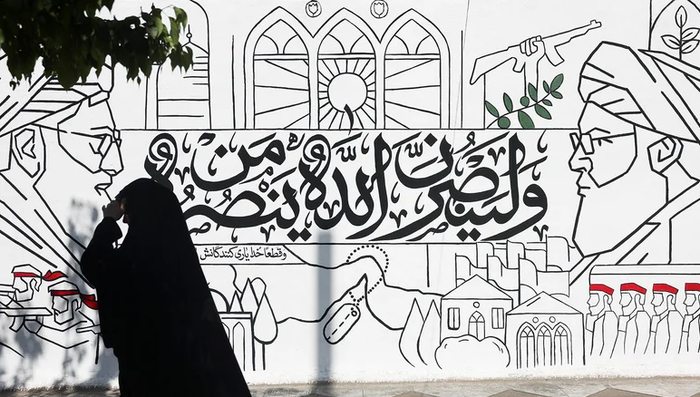 ولینصرنّ اللّه من ینصره
و قطعا خدا یاری کنندگانش